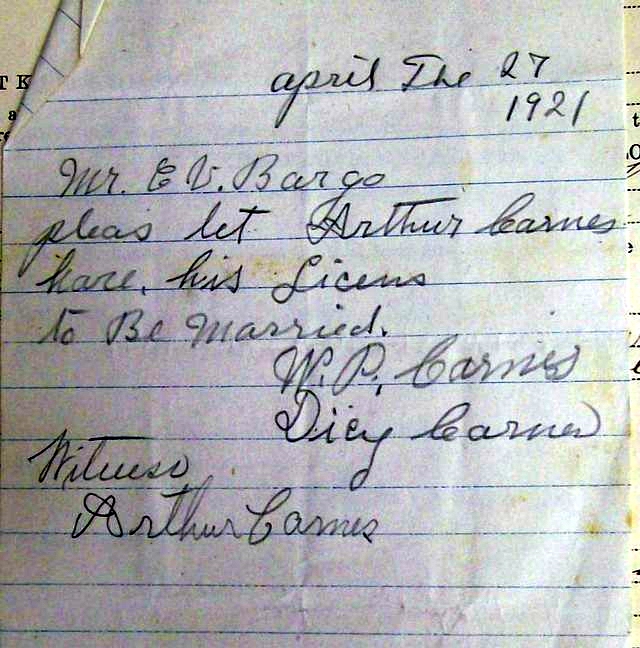 april The 27
1921
Mr. E V. Bargo
pleas let Arthur Carnes
have his Licens
to Be Married.
W. P. Carnes
Dicy Carnes
Witness
Arthur Carnes